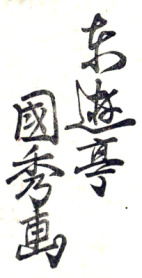 東遊亭
國秀画